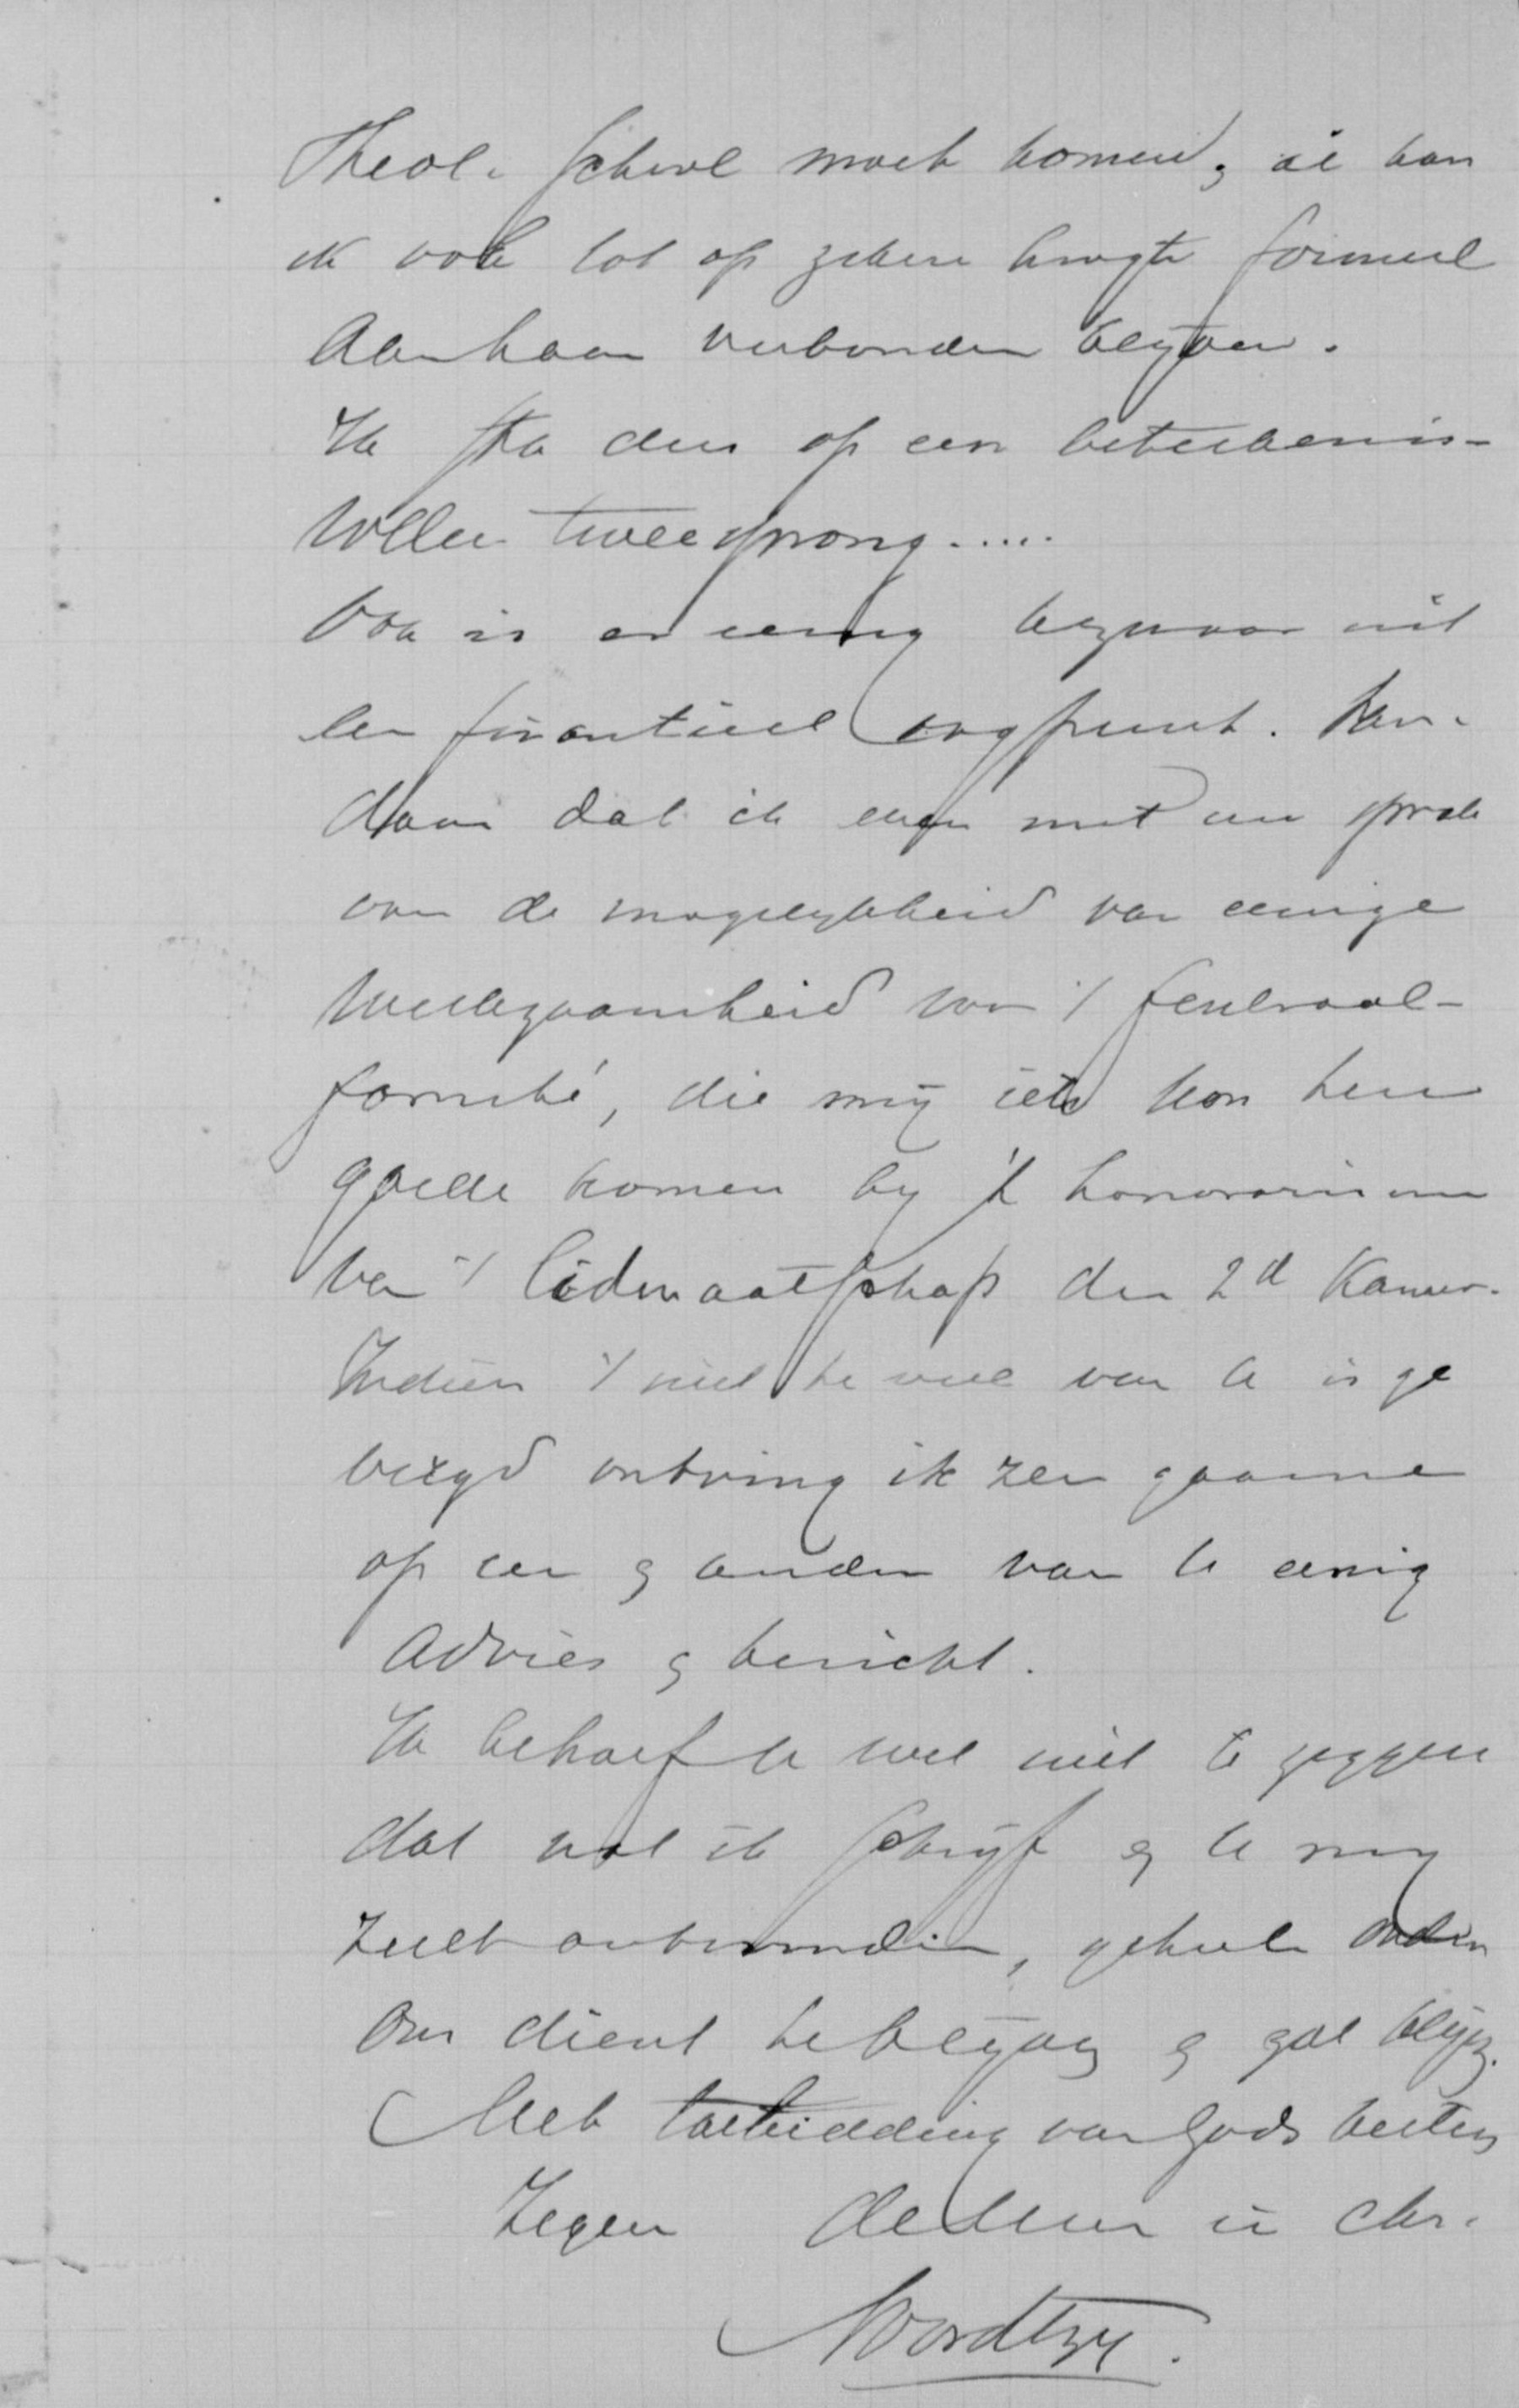 Theol. School moet komen, al kan
ik ook tot op zekere hoogte formeel
Aan haar verbonden blijven.
Ik sta dus op een beteekenis-
volle tweesprong.....
Ook is er eenig bezwaar uit
een finantieel oogpunt. Van-
daar dat ik even met u sprak
van de mogelijkheid van eenige
werkzaamheid voor 't Centraal-
Comité, die mij iets kon ten
goede komen bij 't honorarium
van 't lidmaatschap der 2d Kamer.
Indien 't niet te veel van U is ge
vergd ontving ik zeer gaarne
op een & ander van U eenig
advies & bericht.
Ik behoef U wel niet te zeggen
dat wat ik schrijf & U mij
zult antwoorden, geheel onder
ons dient te blijven & zal blijven.
Met toebidding van Gods besten
Zegen in Chr.
Noordtzij.